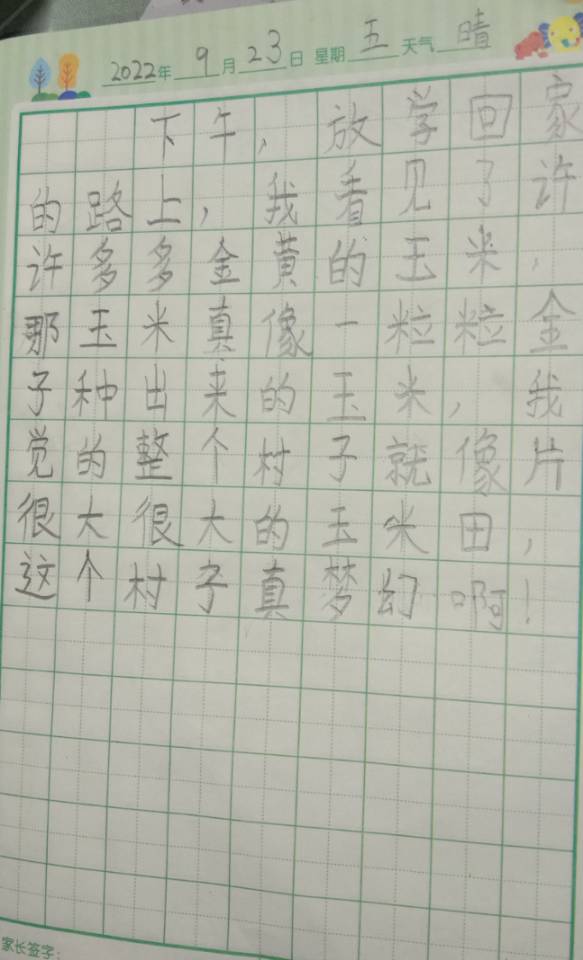 2022年9月23日 星期五 天气晴
下午，放学回家
的路上，我看见了许
许多多金黄的玉米，
那玉米真像一粒粒金
子种出来的玉米，我
觉的整个村子就像片
很大很大的玉米田，
这个村子真梦幻啊！
家长签字：